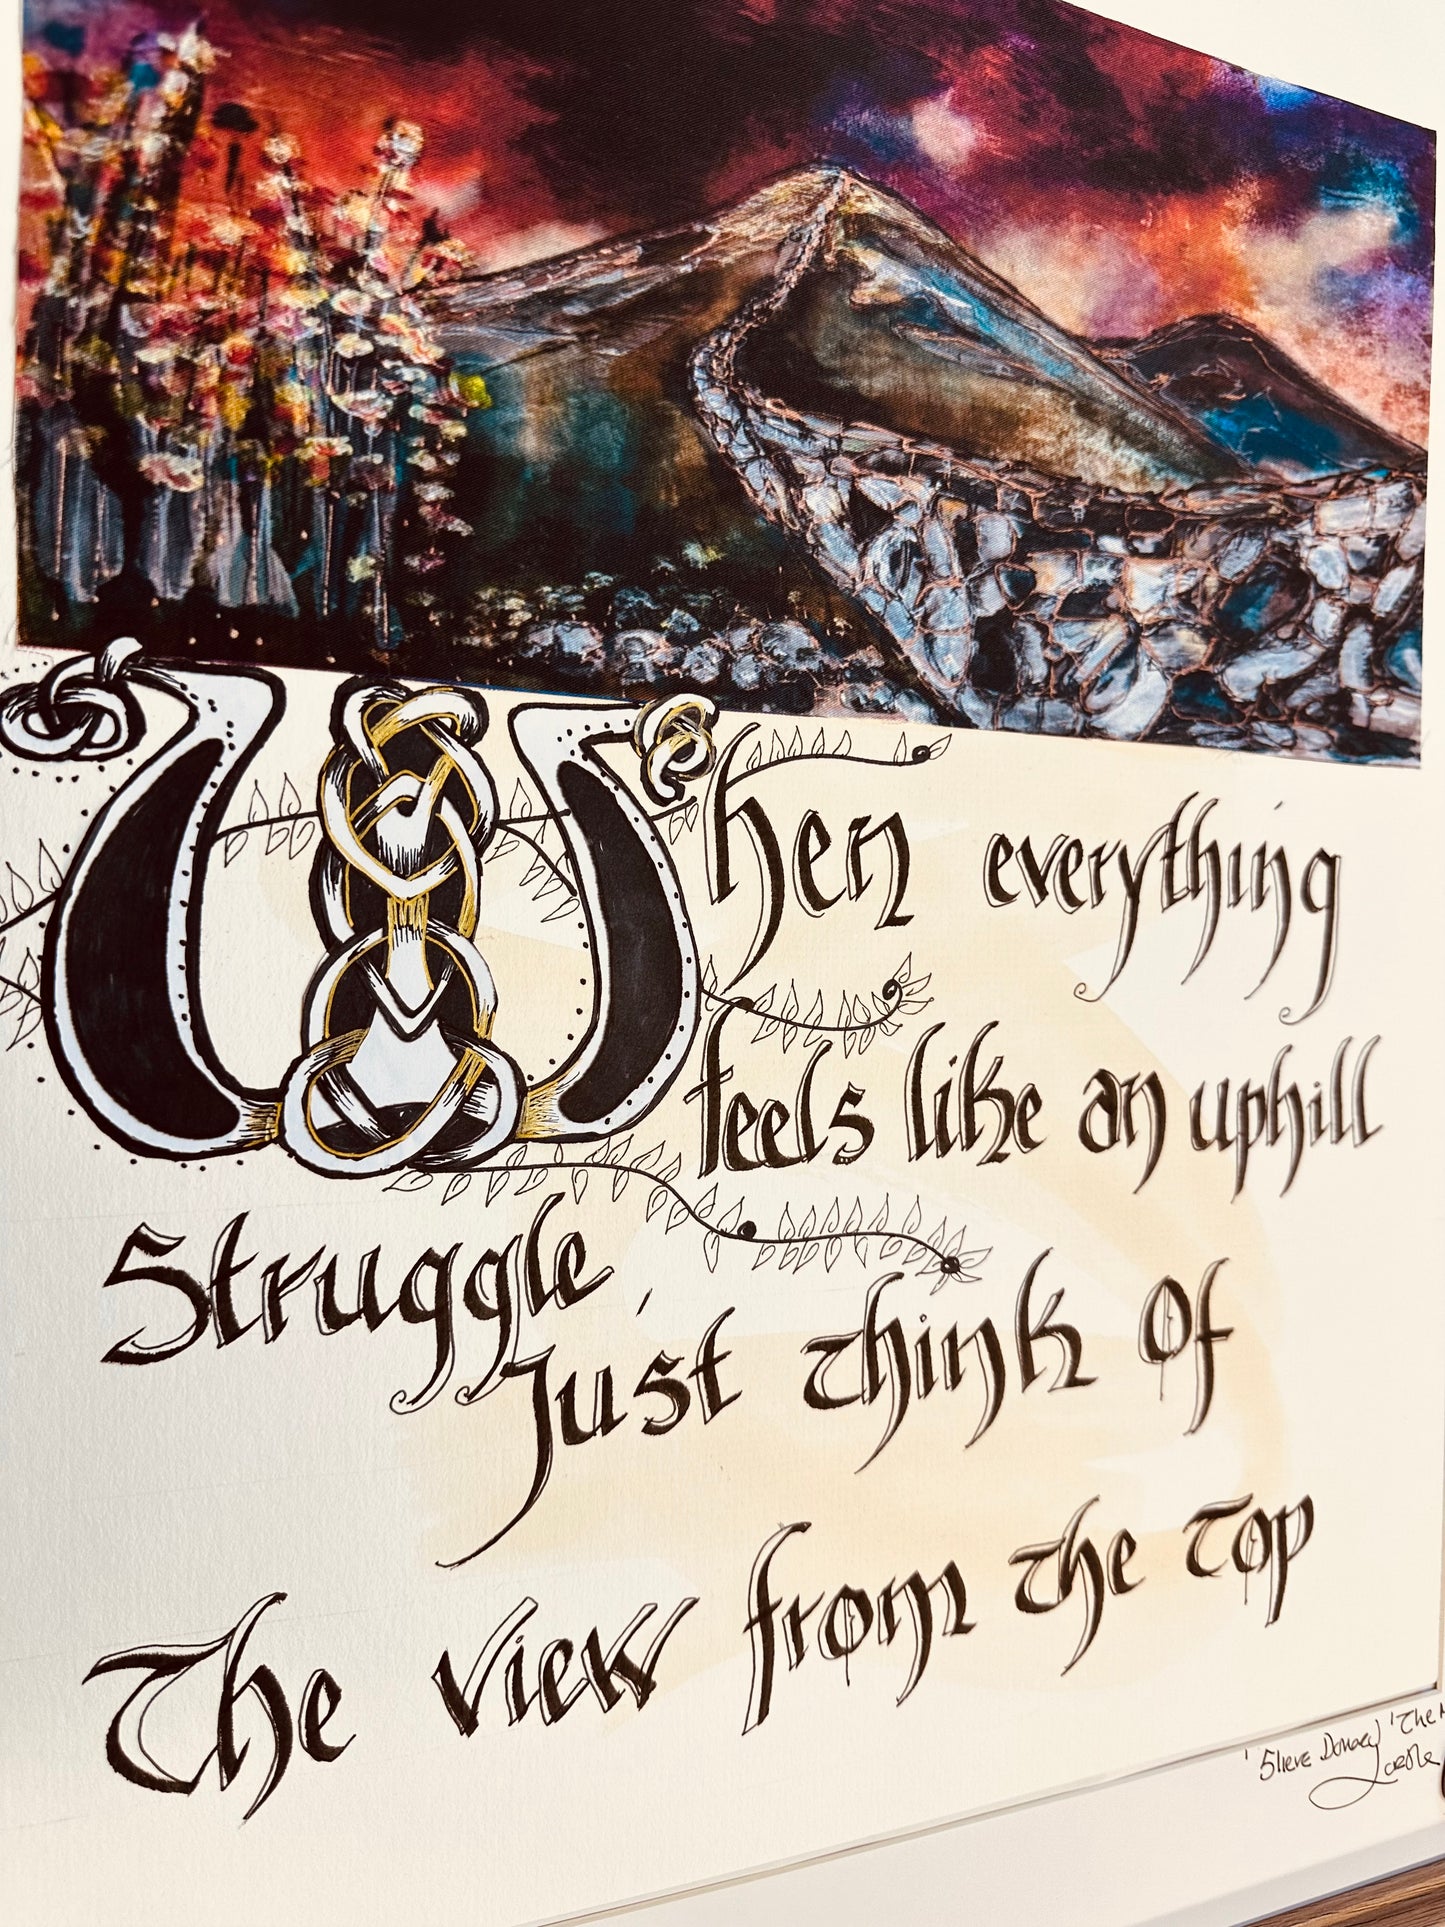 When everything
feels like an uphill
Struggle,
Just think of
The view from the top
'Slieve Donard' 'The